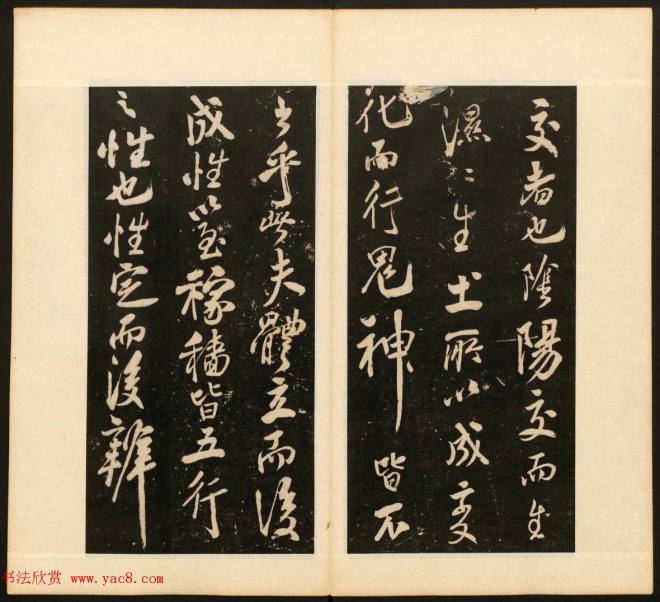 交者也陰陽交而生
濕濕生土所以成變
化而行鬼神皆不
乎此夫體立而後
成性以至稼穡皆五行
之性也性定而後辨
书法欣赏 www.yac8.com